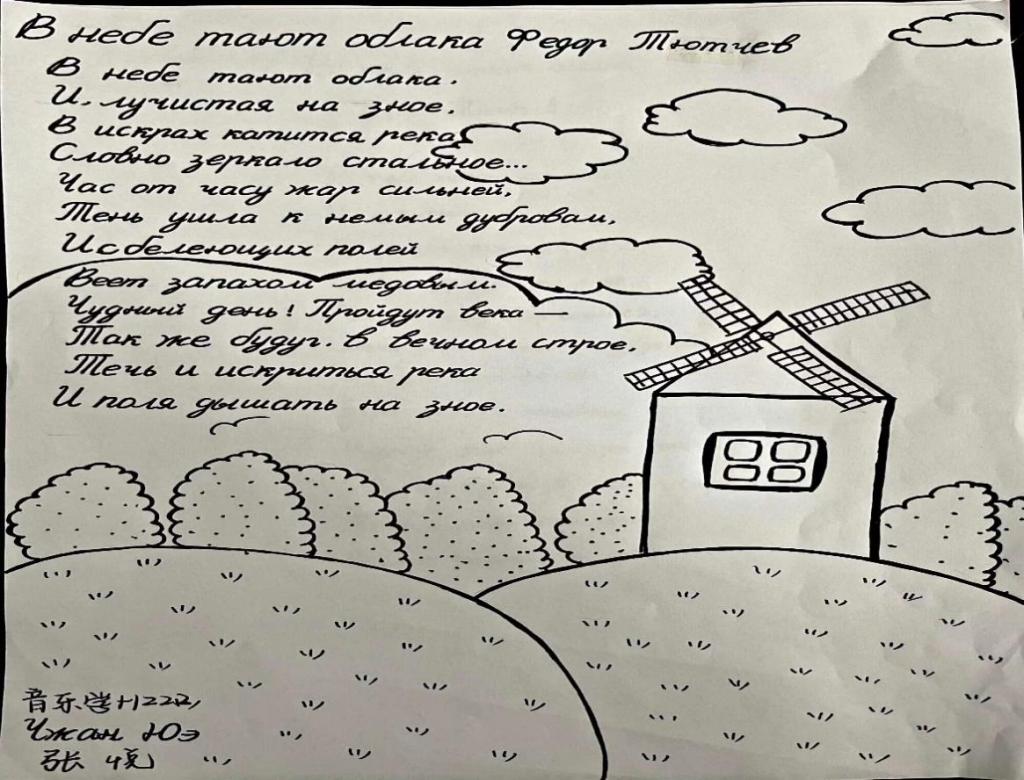 В небе тают облака Федор Тютчев
В небе тают облака.
И, лучистая на зное,
В искрах катится река,
Словно зеркало стальное...
Час от часу жар сильней,
Тень ушла к немым дубровам,
И с белеющих полей
Веет запахом медовым.
Чудный день! Пройдут века —
Так же будут. в вечном строе,
Течь и искриться река
И поля дышать на зное.
音乐学
Чжан Юэ
张 悦